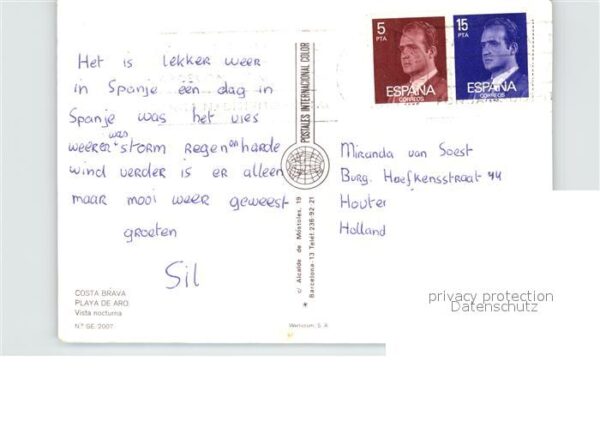 Het is lekker weer
in Spanje één dag in
Spanje was het vies
weer en was storm regen en harde
wind verder is er alleen
maar mooi weer geweest
groeten
Sil
COSTA BRAVA
PLAYA DE ARO
Vista nocturna
N.º SE/2007
POSTALES INTERNACIONAL COLOR
c/ Alcalde de Móstoles, 19
Barcelona-13 Telef. 236-92-21
5
PTA
ESPAÑA
CORREOS
15
PTA
ESPAÑA
CORREOS
Miranda van Soest
Burg. Hoefkensstraat 44
Houter
Holland
privacy protection
Datenschutz